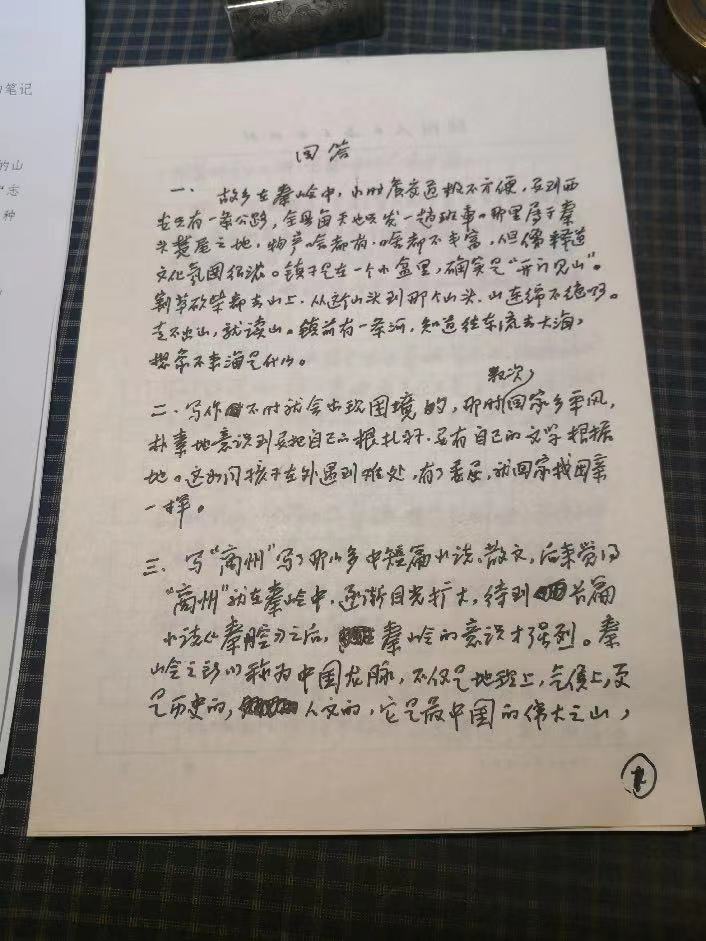 的笔记
的山
“志
种
回答
一、故乡在秦岭中,小时候交通极不方便,要到西
安只有一条公路,全县每天也只发一趟班车。那里属于秦
头楚尾之地,物产啥都有,啥都不丰富,但儒释道
文化氛围很浓。镇子是在一个小盆里,确实是“开门见山”。
割草砍柴都去山上,从这个山头到那个山头,山连绵不绝啊。
走不出山,就读山。镇前有一条河,知道往东流去大海,
想象不来海是什么。
二、写作不时就会出现困境的,那时数次回家乡采风,
朴素地意识到要把自己的根扎好,要有自己的文学根据
地。这如同孩子在外遇到难处,有了委屈,就回家找母亲
一样。
三、写“商州”写了那么多中短篇小说、散文,后来觉得
“商州”就在秦岭中,逐渐目光扩大,待到长篇
小说《秦腔》之后,秦岭的意识才强烈。秦
岭之所以称为中国龙脉,不仅是地理上,气候上,更
是历史的,人文的,它是最中国的伟大之山,
1